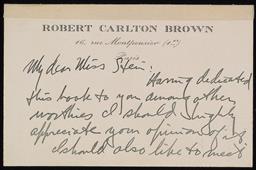 ROBERT CARLTON BROWN
16, rue Montpensier (1er)
Paris
My dear Miss Stein:
Having dedicated
this book to you among other
worthies I should highly
appreciate your opinion of it
I should also like to meet